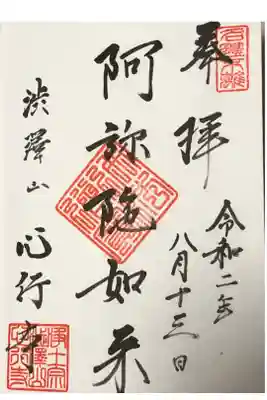 名體不離
奉拝
令和二年
八月十三日
阿弥陀如来
渋澤山 心行寺